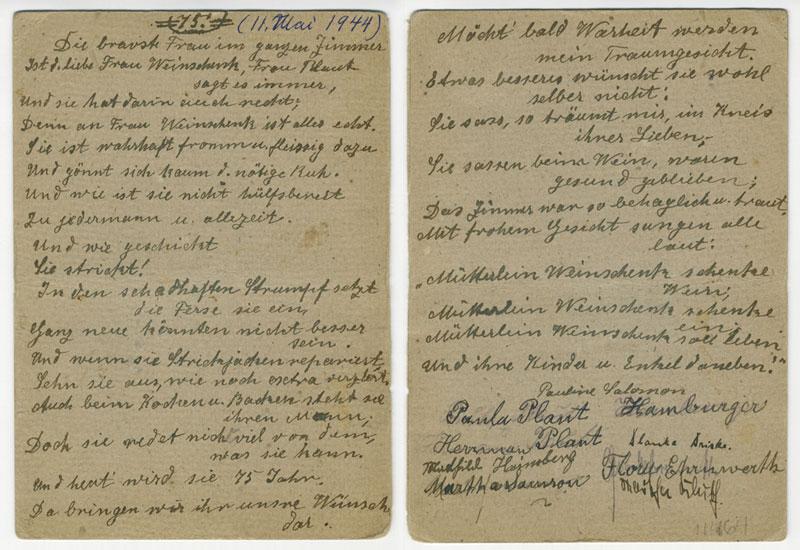 75! (11. Mai 1944)
Die bravste Frau im ganzen Zimmer
Ist d. liebe Frau Weinschenk, Frau Plaut
sagt es immer,
Und sie hat darin auch recht;
Denn an Frau Weinschenk ist alles echt.
Sie ist wahrhaft fromm u. fleissig dazu
Und gönnt sich kaum d. nötige Ruh.
Und wie ist sie nicht hülfsbereit
Zu jedermann u. allezeit.
Und wie geschickt
Sie strickt!
In den schadhaften Strumpf setzt
die Ferse sie ein,
Ganz neue könnten nicht besser
sein.
Und wenn sie Strickjacken repariert,
Sehn sie aus, wie noch extra verziert.
Auch beim Kochen u. Backen steht sie
ihren Mann;
Doch sie redet nicht viel von dem,
was sie kann.
Und heut wird sie 75 Jahr.
Da bringen wir ihr unsre Wünsch
dar.
Möcht' bald Warheit werden
mein Traumgesicht.
Etwas besseres wünscht sie wohl
selber nicht:
Sie sass, so träumt mir, im Kreis
ihrer Lieben;
Sie sassen beim Wein, waren
gesund geblieben;
Das Zimmer war so behaglich u. traut,
Mit frohem Gesicht sungen alle
laut:
„Mütterlein Weinschenk schenke
Wein;
Mütterlein Weinschenk schenke
ein;
Mütterlein Weinschenk soll leben
Und ihre Kinder u. Enkel daneben!"
Pauline Salomon
Paula Plaut Hamburger
Herrman Plaut Blanka
Heinsberg Flora Ehrnwerth
Martha Samson